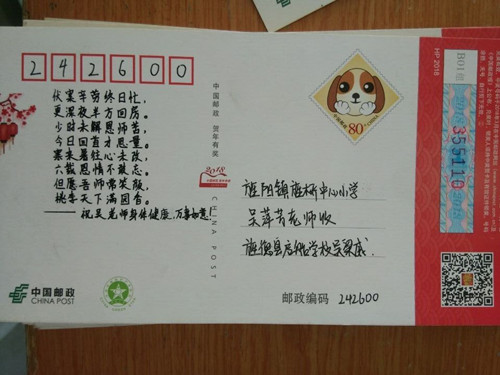 242600
伏案辛劳终日忙,
更深夜半方回房。
少时未解恩师苦,
今日回首才思量。
寒来暑往心未改,
六载恩情不敢忘。
但愿吾师常笑颜,
桃李天下满园香。
——祝吴老师身体健康,万事如意!
中国邮政 贺年有奖
2018
CHINA POST
中国邮政
80
旌阳镇旌桥中心小学
吴萍芳老师收
邮政编码 242600
中国邮政
CHINA POST
HP2018
B01组
2018
355110
2018